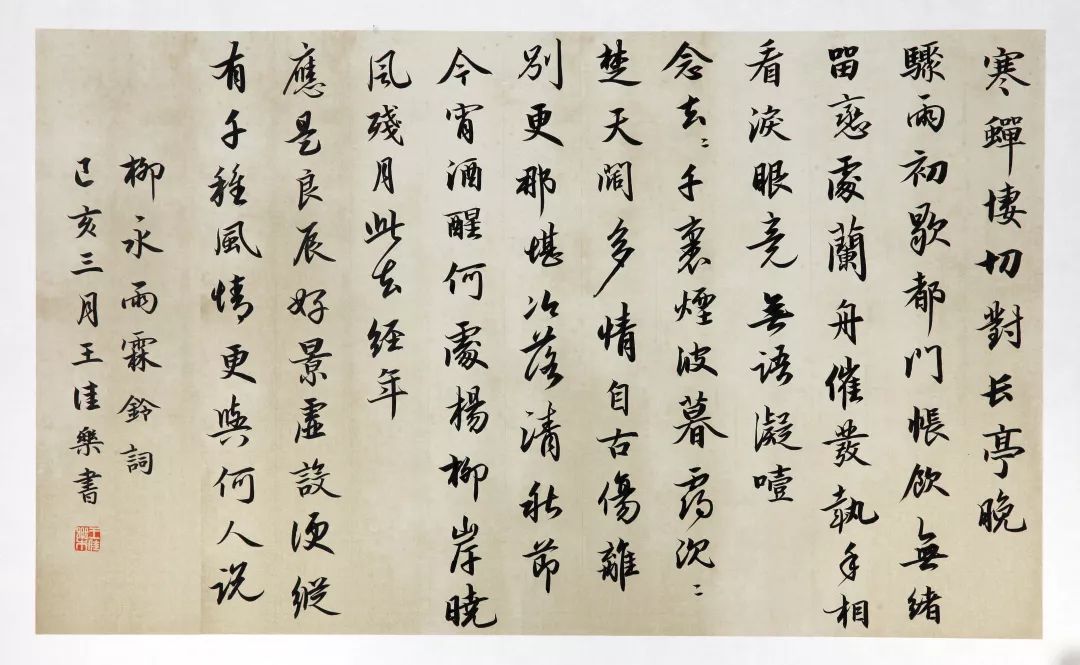 寒蟬悽切對长亭晚
驟雨初歇都門帳飲無緒
留恋處蘭舟催發執手相
看淚眼竟無語凝噎
念去〻千裏煙波暮靄沉〻
楚天闊多情自古傷離
別更那堪冷落清秋節
今宵酒醒何處楊柳岸曉
風殘月此去经年
應是良辰好景虛設便縱
有千種風情更與何人说
柳永雨霖鈴詞
己亥三月王佳樂書